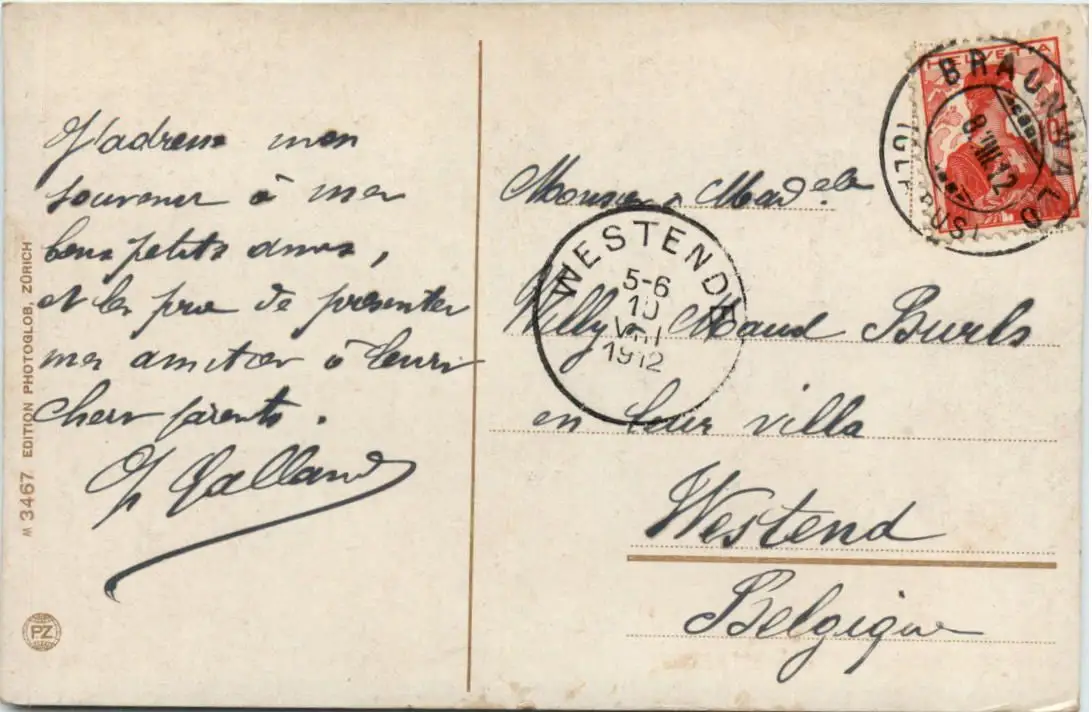 J'adresse mon
souvenir à mes
bons petits amis,
et les prie de présenter
mes amitiés à leurs
chers parents.
Galland
M 3467 EDITION PHOTOGLOB, ZÜRICH
PZ
HELVETIA
BRAUNWALD
8.VIII.12
WESTENDE
5-6
10
VIII
1912
Willy & Maud Burls
en leur villa
Westend
Belgique